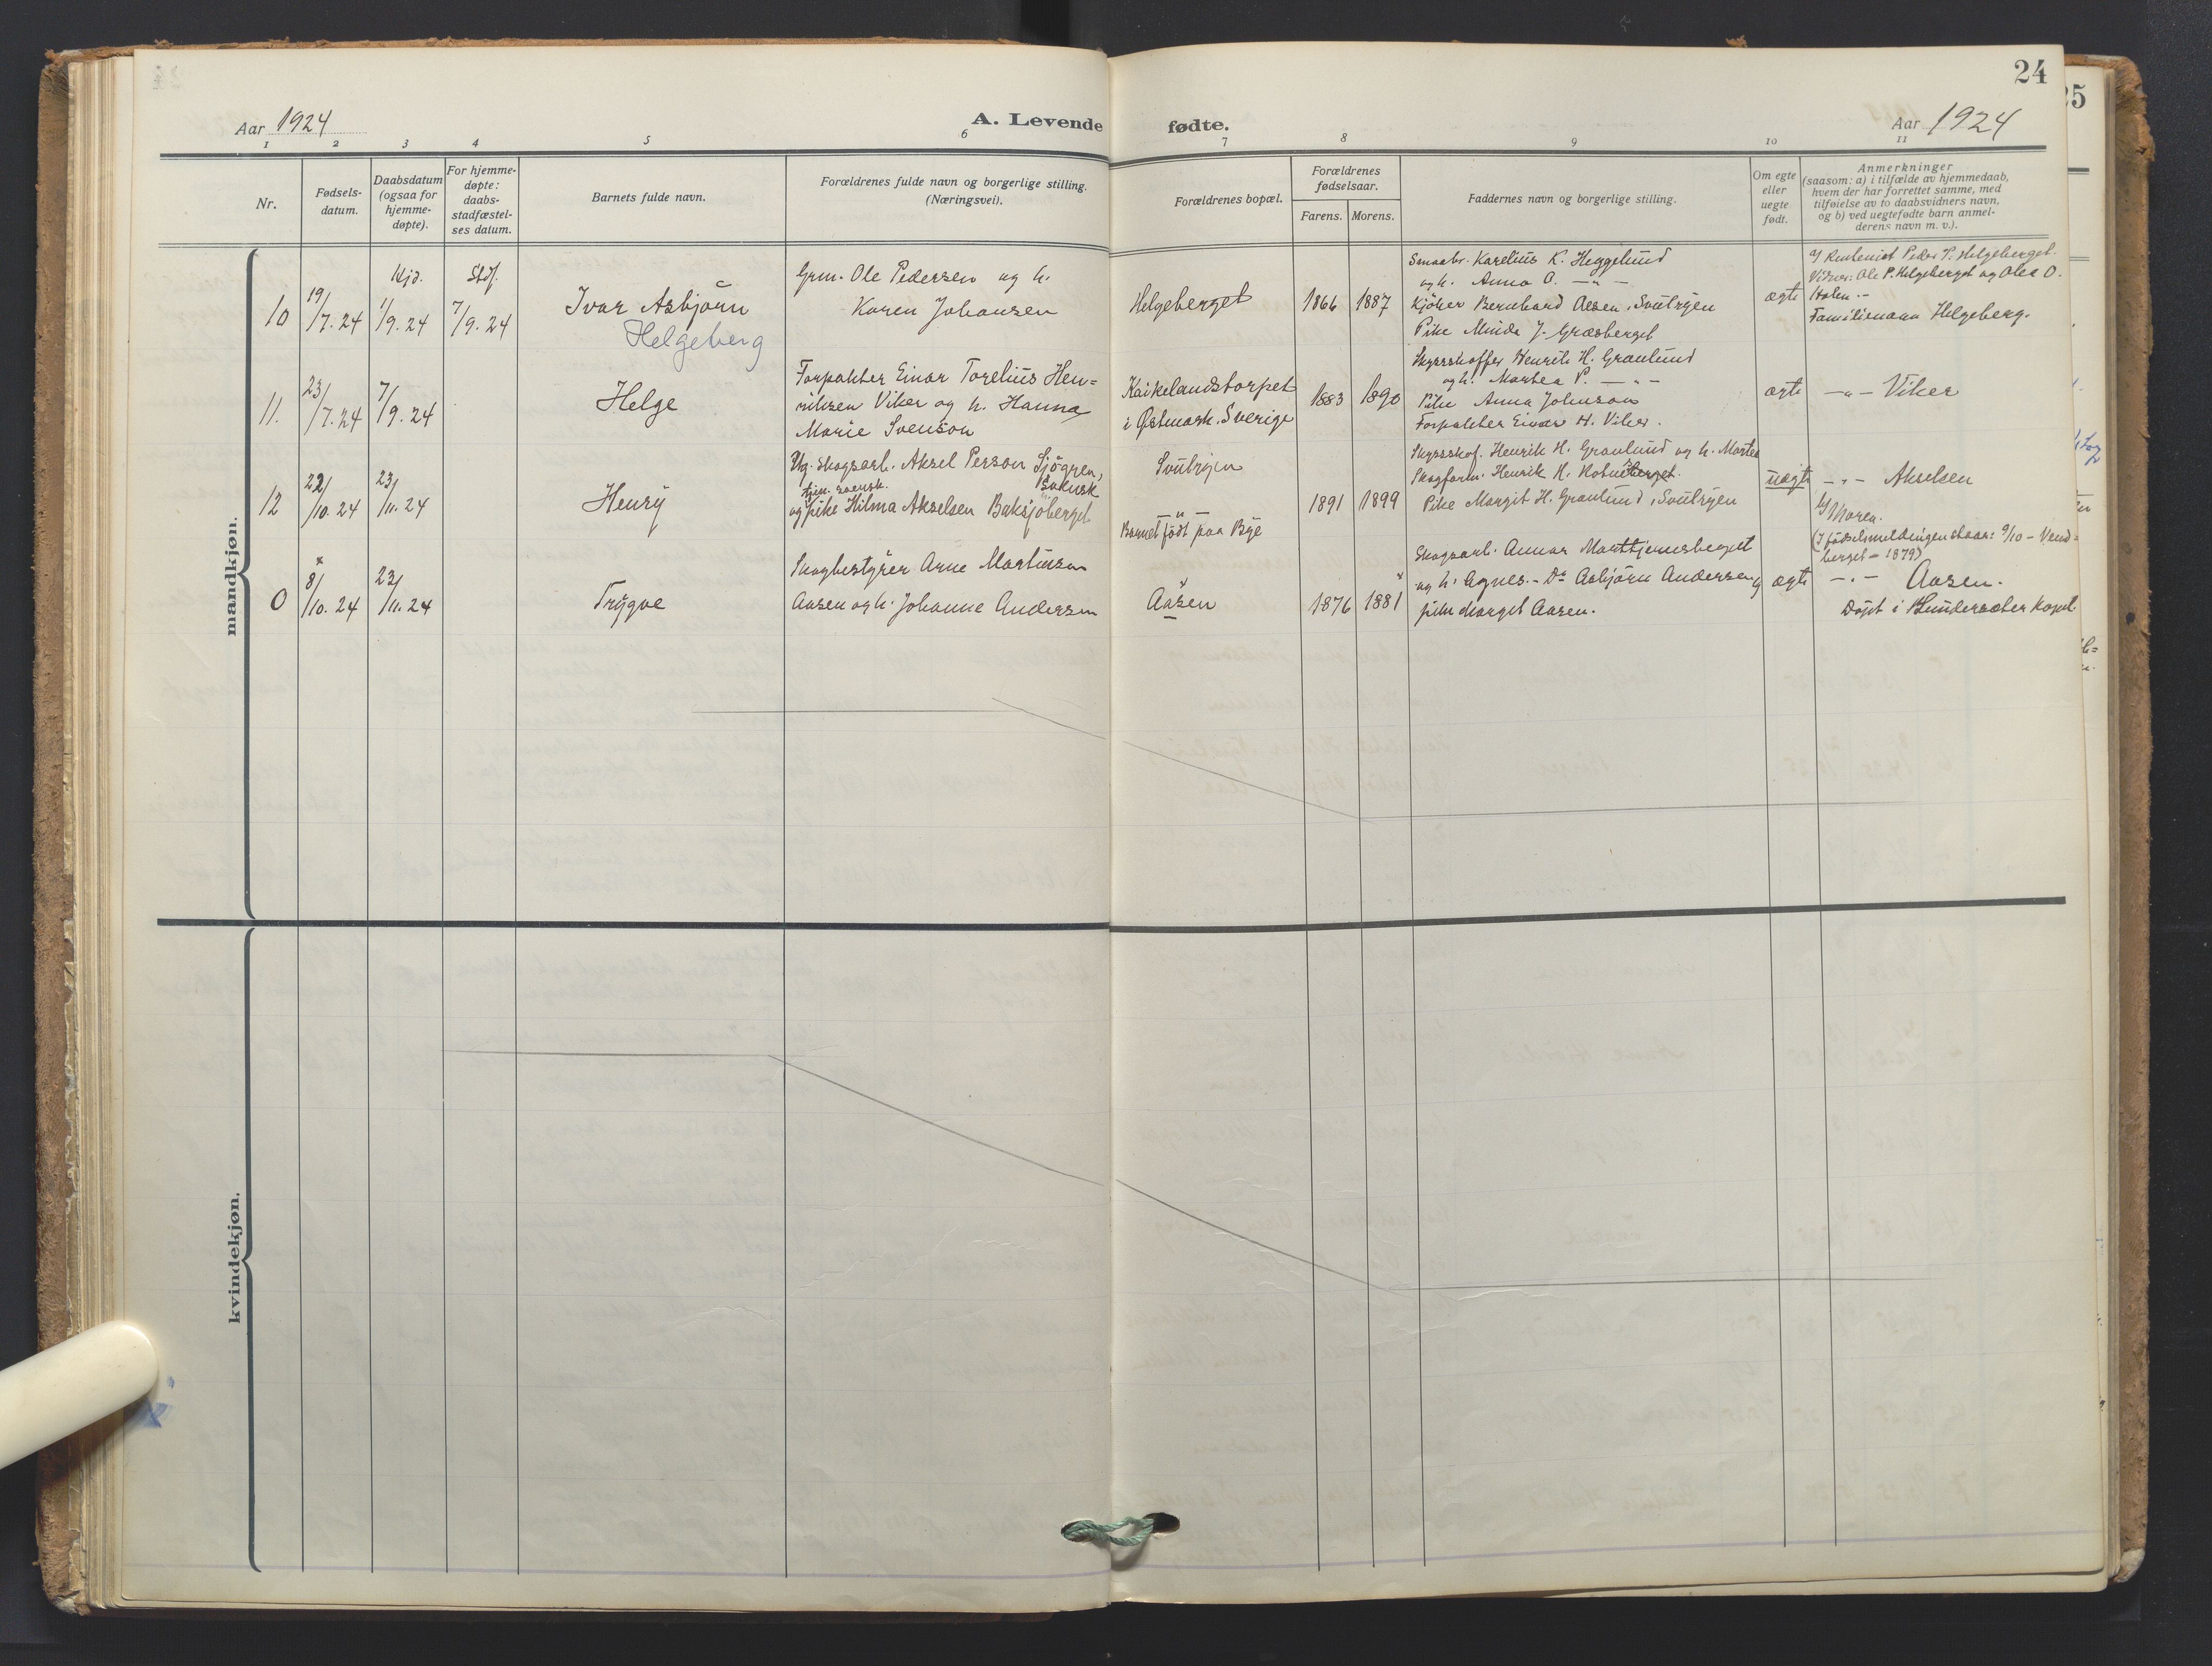 24
25
Aar 1924
A. Levende fødte.
Aar 1924
1 2 3 4 5 6 7 8 9 10 11
Nr.
Fødsels-
datum.
Daabsdatum
(ogsaa for
hjemme-
døpte).
For hjemme-
døpte:
daabs-
stadfæstel-
ses datum.
Barnets fulde navn.
Forældrenes fulde navn og borgerlige stilling.
(Næringsvei).
Forældrenes bopæl.
Forældrenes
fødselsaar.
Farens. Morens.
Faddernes navn og borgerlige stilling.
Om egte
eller
uegte
født.
Anmerkninger
(saasom: a) i tilfælde av hjemmedaab,
hvem der har forrettet samme, med
tilføielse av to daabsvidners navn,
og b) ved uegtefødte barn anmel-
derens navn m. v.).
mandkjøn.
10
19/7. 24
Hjd.
1/9. 24
Stdf.
7/9. 24
Ivar Asbjørn
Helgeberg
Grm. Ole Pedersen og h.
Karen Johansen
Helgeberget
1866
1887
Smaabr. Karelius K. Heggelund
og h. Anna O. — " —
Kjøker Bernhard Olsen, Svulrjen
Pike Minda J. Græsberget
ægte
Peder P. Helgeberget.
Vidner: Ole P. Helgeberget og Olea O.
Holen. -
Familienavn Helgeberg.
11.
23/7. 24
7/9. 24
Helge
Forpakter Einar Torelius Hen=
riksen Viker og h. Hanna
Marie Svenson
Kaikelandstorpet
i Østmark. Sverige
1883
1890
Skyssskaffer Henrik H. Granlund
og h. Martea P. — " —
Pike Anna Johnson
Forpakter Einar H. Viker.
ægte
— " — Viker
12
22/10. 24
23/11. 24
Henry
Ug. Skogsarb. Aksel Person Sjögren,
svensk
svensk.
og pike Hilma Akselsen Baksjøberget
Svulrjen
— " —
Barnet født paa Bye
1891
1899
Skyssskaf. Henrik H. Granlund og h. Martea
Skogform. Henrik H.
Pike Margit H. Granlund, Svulrjen
uægte
— " — Akselsen
Moren.
(I fødselsmeldingen staar: 9/10 -
berget - 1879)
0
8/10. 24
23/11. 24
Trygve
Skogbestyrer Arne Martinsen
Aasen og h. Johanne Andersen
Aasen
1876
1881
Skogsarb. Annar Morttjernsberget
og h. Agnes. - Do Asbjørn Andersen og
pike Margit Aasen.
ægte
— " — Aasen.
Døpt i Lundersæter Kapel
kvindekjøn.